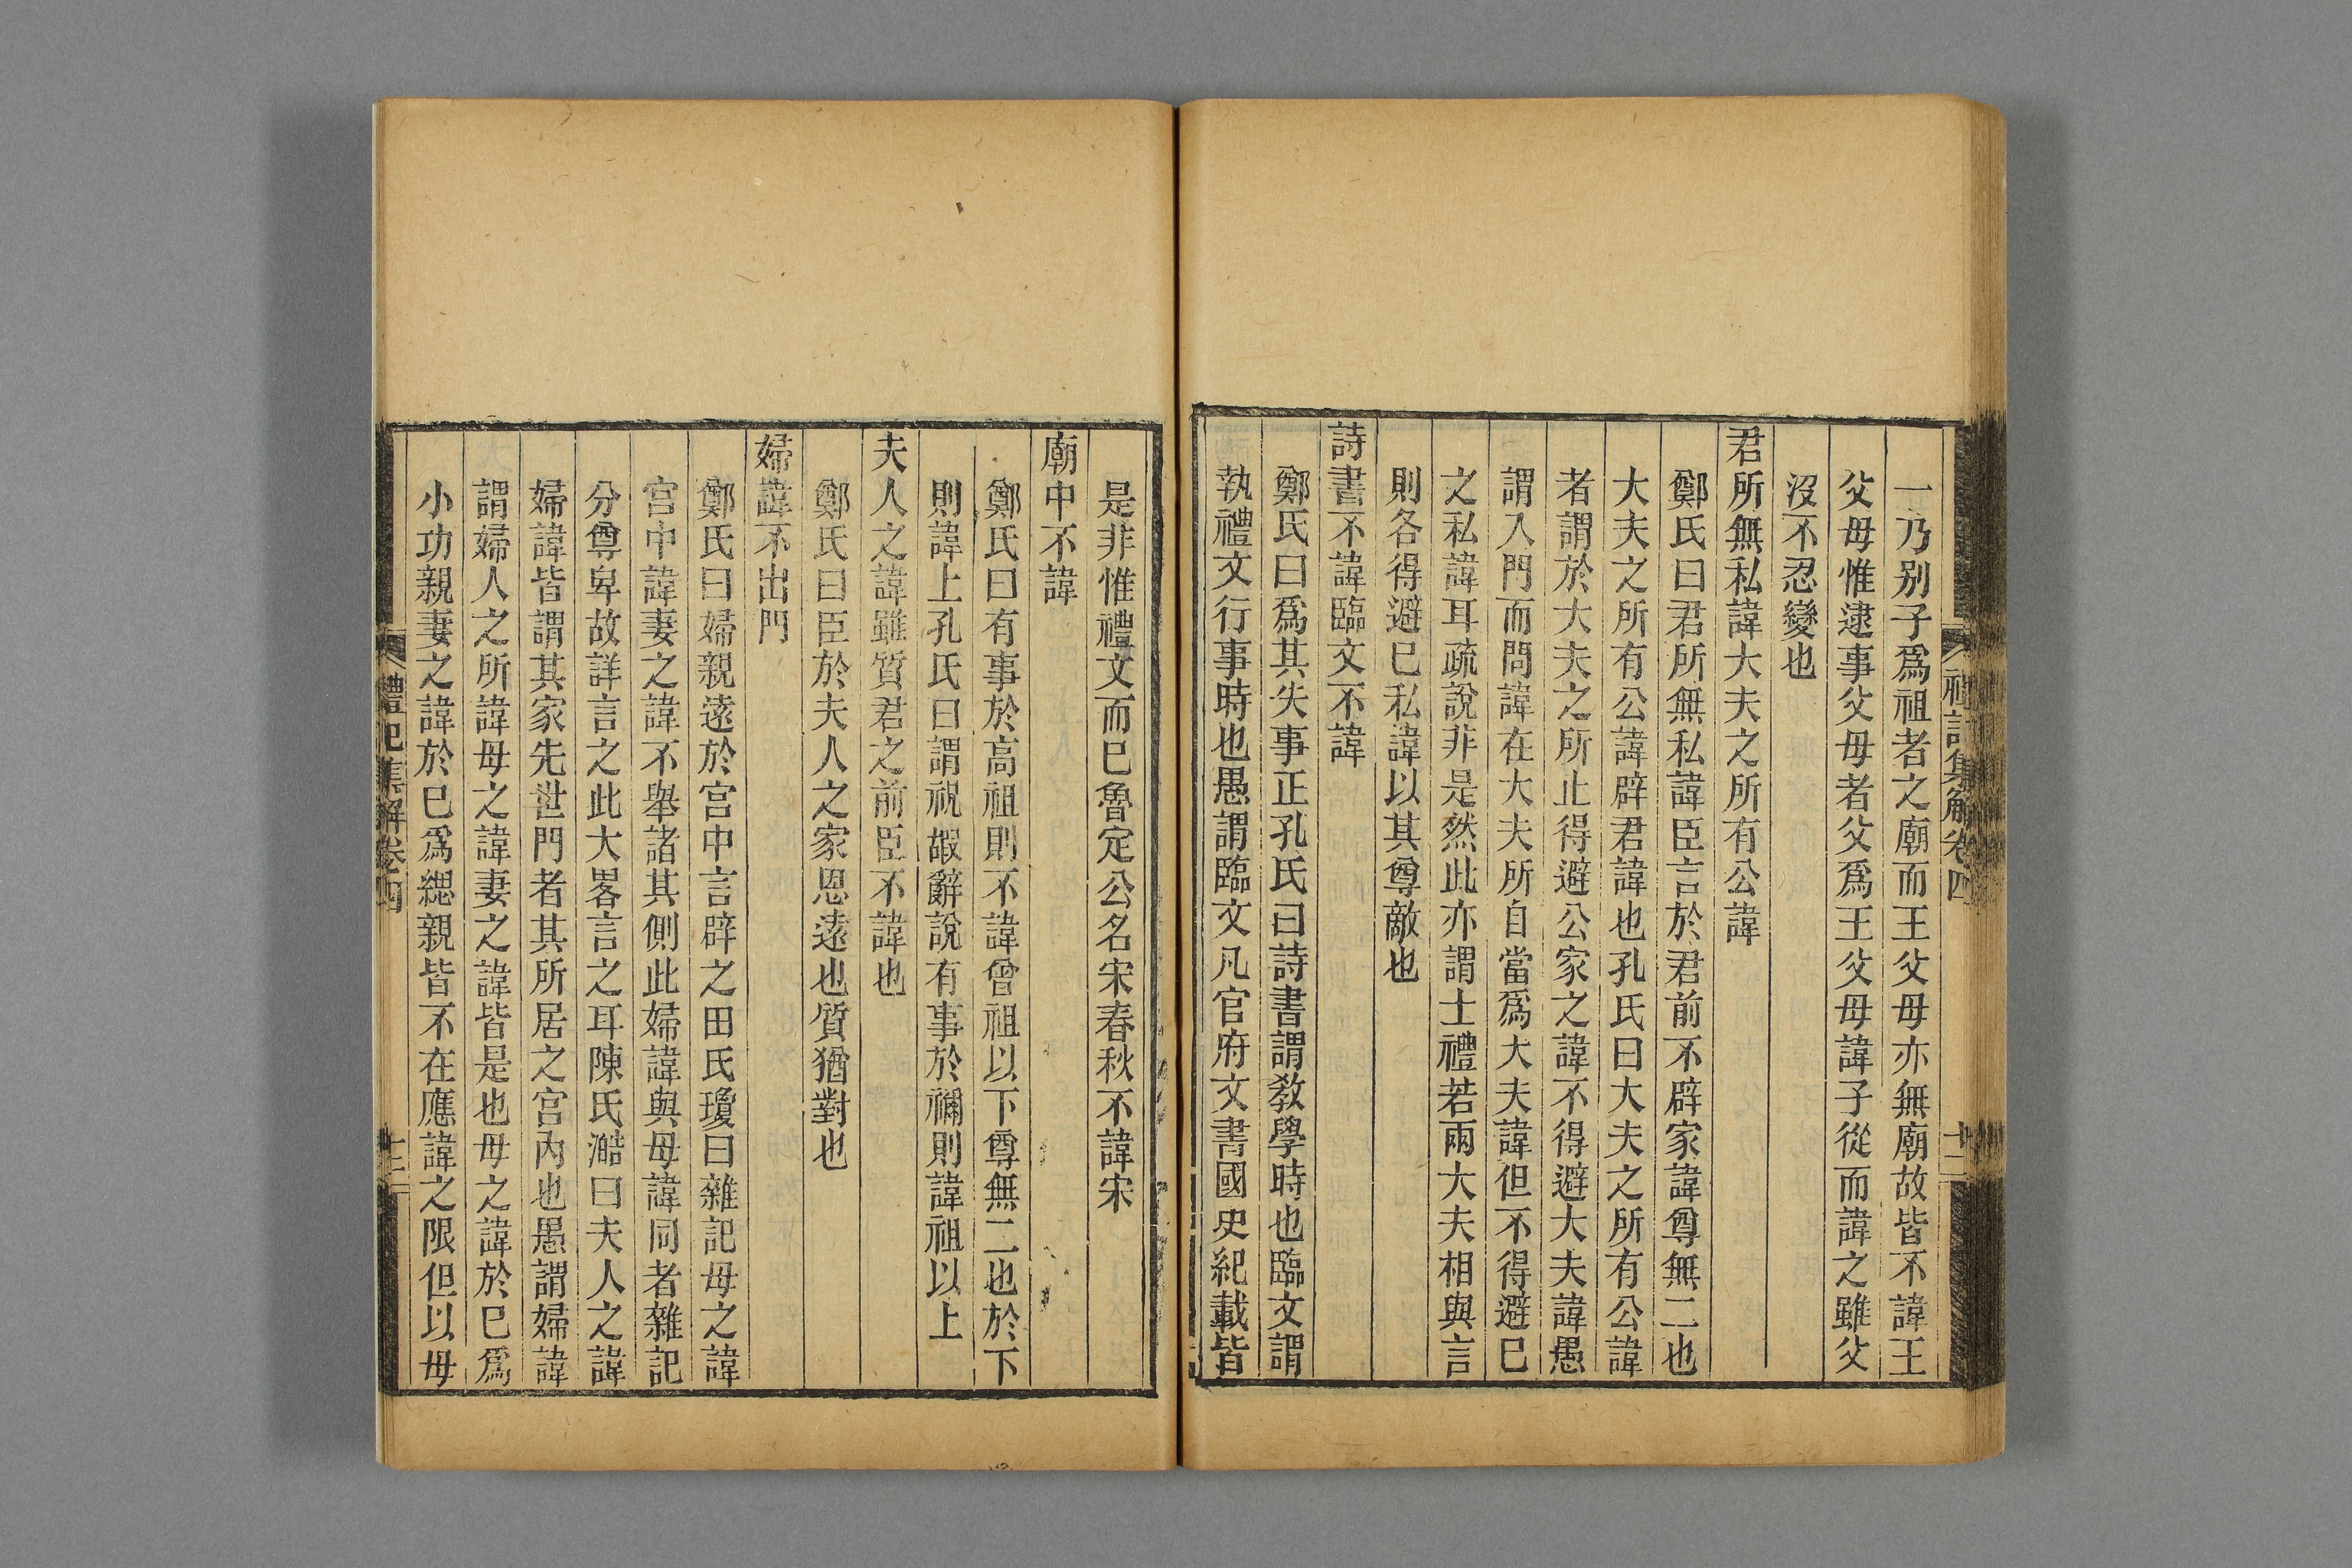 禮記集解卷四
十二
一乃别子爲祖者之廟而王父母亦無廟故皆不諱王
父母惟逮事父母者父爲王父母諱子從而諱之雖父
沒不忍變也
君所無私諱大夫之所有公諱
鄭氏曰君所無私諱臣言於君前不辟家諱尊無二也
大夫之所有公諱辟君諱也孔氏曰大夫之所有公諱
者謂於大夫之所止得避公家之諱不得避大夫諱愚
謂入門而問諱在大夫所自當爲大夫諱但不得避已
之私諱耳疏說非是然此亦謂士禮若兩大夫相與言
則各得避已私諱以其尊敵也
詩書不諱臨文不諱
鄭氏曰爲其失事正孔氏曰詩書謂教學時也臨文謂
執禮文行事時也愚謂臨文凡官府文書國史紀載皆
是非惟禮文而已魯定公名宋春秋不諱宋
廟中不諱
鄭氏曰有事於高祖則不諱曾祖以下尊無二也於下
則諱上孔氏曰謂祝嘏辭說有事於禰則諱祖以上
夫人之諱雖質君之前臣不諱也
鄭氏曰臣於夫人之家恩遠也質猶對也
婦諱不出門
鄭氏曰婦親遠於宮中言辟之田氏瓊曰雜記母之諱
宮中諱妻之諱不舉諸其側此婦諱與母諱同者雜記
分尊卑故詳言之此大畧言之耳陳氏澔曰夫人之諱
婦諱皆謂其家先世門者其所居之宮內也愚謂婦諱
謂婦人之所諱母之諱妻之諱皆是也母之諱於已爲
小功親妻之諱於已爲緦親皆不在應諱之限但以母
禮記集解卷四
十二